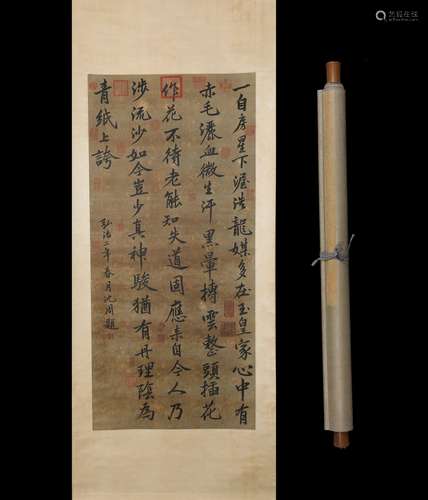 一自房星下渥洼龍媒多在玉皇家心中有
赤毛灑血微生汗黑暈摶雲整頭插花
作花不待老能知失道固應来自今人乃
涉流沙如今豈少真神駿猶有丹理陰為
青紙上誇
弘治二年春月沈周題
艺狐在线